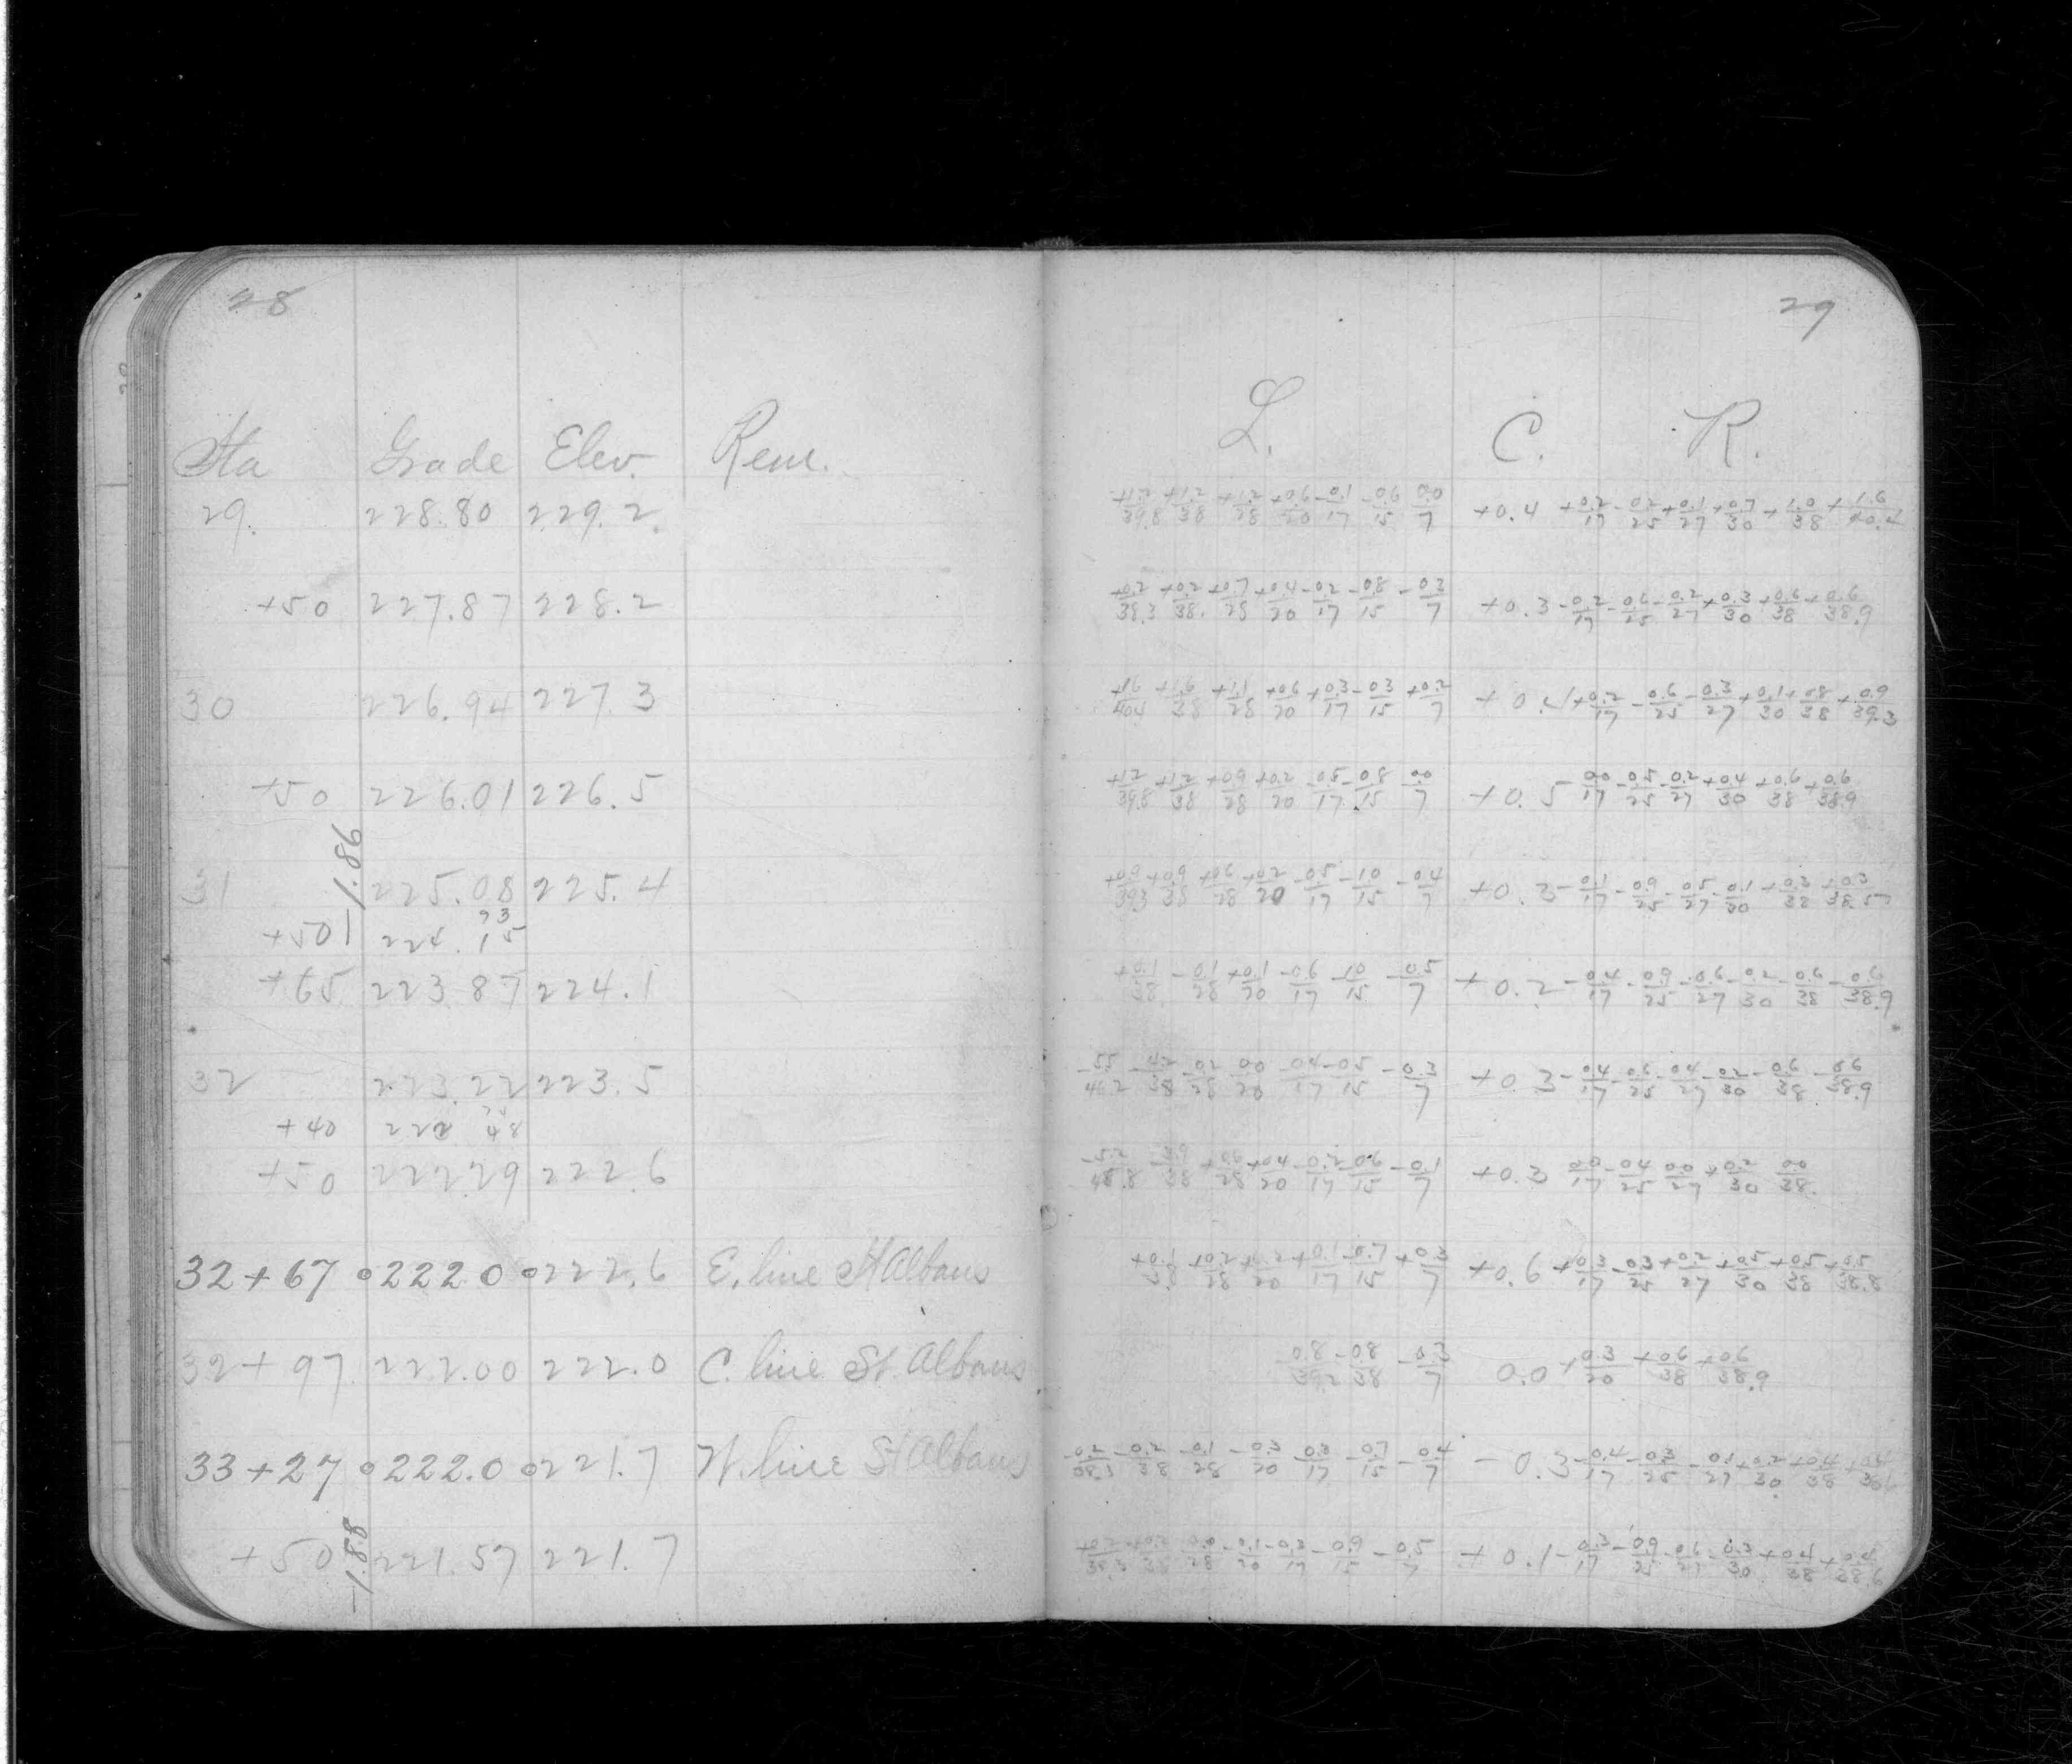 28
Sta Grade Elev. Rem.
29. 228.80 229.2
+50 227.87 228.2
30 226.94 227.3
+50 226.01 226.5
-1.86
31 225.08 225.4
93
+50 224.15
+65 223.87 224.1
32 223.22 223.5
+40 222 48
+50 222.29 222.6
32+67 222.0 222.6 E. line St Albans
32+97 222.00 222.0 C. line St. Albans
33+27 222.0 221.7 W. line St Albans
-1.88
+50 221.57 221.7
29
L. C. R.
+1.2/39.8 +1.2/38 +1.2/28 +0.6/20 -0.1/17 -0.6/15 0.0/7 +0.4 +0.2/17 -0.2/25 +0.1/27 +0.7/30 +1.0/38 +1.6/40.4
+0.2/38.3 +0.2/38. +0.7/28 +0.4/20 -0.2/17 -0.8/15 -0.3/7 +0.3 -0.2/17 -0.6/25 -0.2/27 +0.3/30 +0.6/38 +0.6/38.9
+1.6/40.4 +1.6/38 +1.1/28 +0.6/20 +0.3/17 -0.3/15 +0.2/7 +0.4 +0.2/17 -0.6/25 -0.3/27 +0.1/30 +0.8/38 +0.9/39.3
+1.2/39.8 +1.2/38 +0.9/28 +0.2/20 -0.5/17 -0.8/15 0.0/7 +0.5 0.0/17 -0.5/25 -0.2/27 +0.4/30 +0.6/38 +0.6/38.9
+0.9/39.3 +0.9/38 +0.6/28 +0.2/20 -0.5/17 -1.0/15 -0.4/7 +0.3 -0.1/17 -0.9/25 -0.5/27 -0.1/30 +0.3/38 +0.3/38.5
+0.1/38 -0.1/28 +0.1/20 -0.6/17 -1.0/15 -0.5/7 +0.2 -0.4/17 -0.9/25 -0.6/27 -0.2/30 -0.6/38 -0.6/38.9
-5.5/46.2 -4.2/38 -0.2/28 0.0/20 -0.4/17 -0.5/15 -0.3/7 +0.3 -0.4/17 -0.6/25 -0.4/27 -0.2/30 -0.6/38 -0.6/38.9
-5.2/45.8 -3.9/38 +0.6/28 +0.4/20 -0.2/17 -0.6/15 -0.1/7 +0.3 0.0/17 -0.4/25 0.0/27 +0.2/30 0.0/38.
+0.1/38 +0.2/28 /20 +0.1/17 -0.7/15 +0.3/7 +0.6 +0.3/17 -0.3/25 +0.2/27 +0.5/30 +0.5/38 +0.5/38.8
0.8/39.2 -0.8/38 -0.3/7 0.0 +0.3/20 +0.6/38 +0.6/38.9
-0.2/38.3 -0.2/38 -0.1/28 -0.3/20 0.3/17 -0.7/15 -0.4/7 -0.3 -0.4/17 -0.3/25 -0.1/27 +0.2/30 +0.4/38
+0.2/38.3 +0.2/38 0.0/28 -0.1/20 -0.3/17 -0.9/15 -0.5/7 +0.1 -0.3/17 -0.9/25 -0.6/27 -0.3/30 +0.4/38 +0.4/38.6